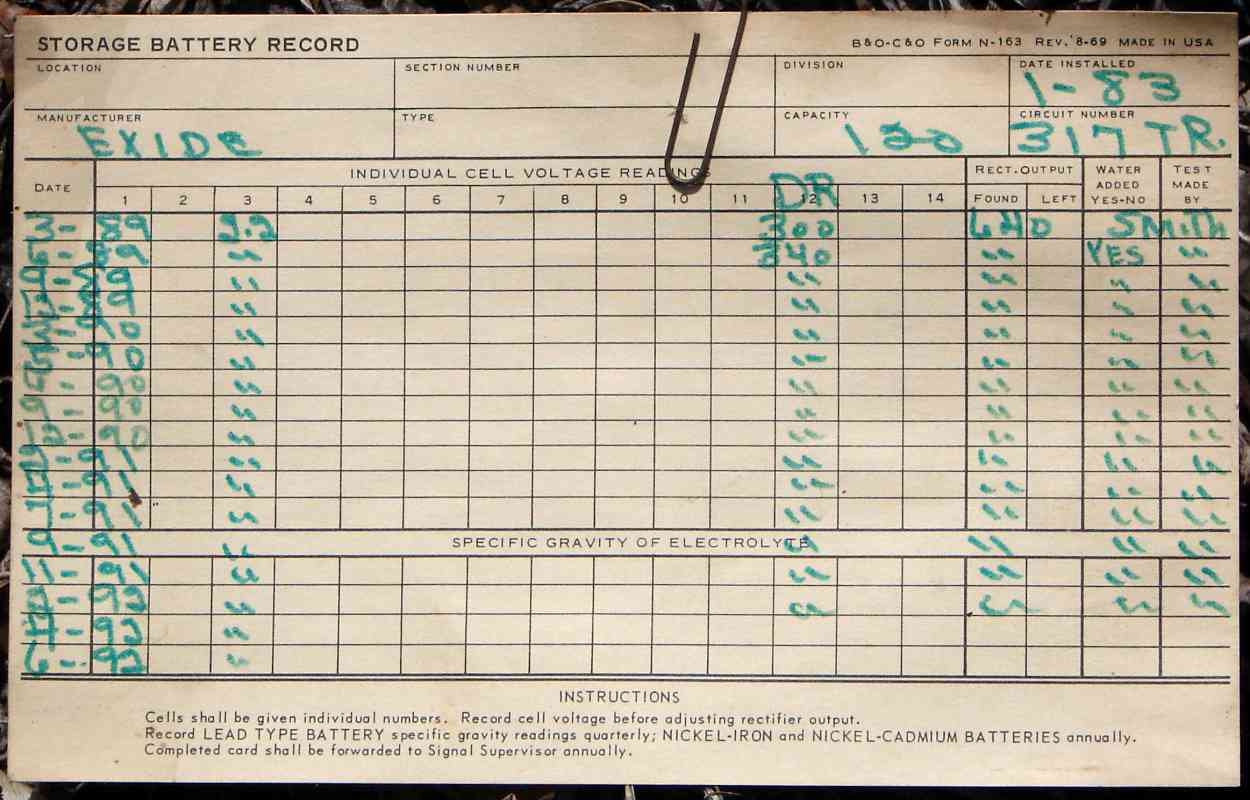 STORAGE BATTERY RECORD B&O-C&O FORM N-163 REV. 8-69 MADE IN USA
LOCATION SECTION NUMBER DIVISION DATE INSTALLED
1-83
MANUFACTURER TYPE CAPACITY CIRCUIT NUMBER
EXIDE 120 317 TR.
DATE INDIVIDUAL CELL VOLTAGE READINGS RECT. OUTPUT WATER ADDED YES-NO TEST MADE BY
1 2 3 4 5 6 7 8 9 10 11 12 13 14 FOUND LEFT
DR
3-89 2.2 300 640 Smith
6-89 " 340 " YES "
9-89 " " " " "
89 " " " " "
90 " " " " "
5-90 " " " " "
90 " " " " "
9-90 " " " " "
12-90 " " " " "
91 " " " " "
91 " " " " "
91 " " " " "
SPECIFIC GRAVITY OF ELECTROLYTE
9-91 " " " " "
11-91 " " " " "
92 " " " " "
4-92 "
6-92 "
INSTRUCTIONS
Cells shall be given individual numbers. Record cell voltage before adjusting rectifier output.
Record LEAD TYPE BATTERY specific gravity readings quarterly; NICKEL-IRON and NICKEL-CADMIUM BATTERIES annually.
Completed card shall be forwarded to Signal Supervisor annually.